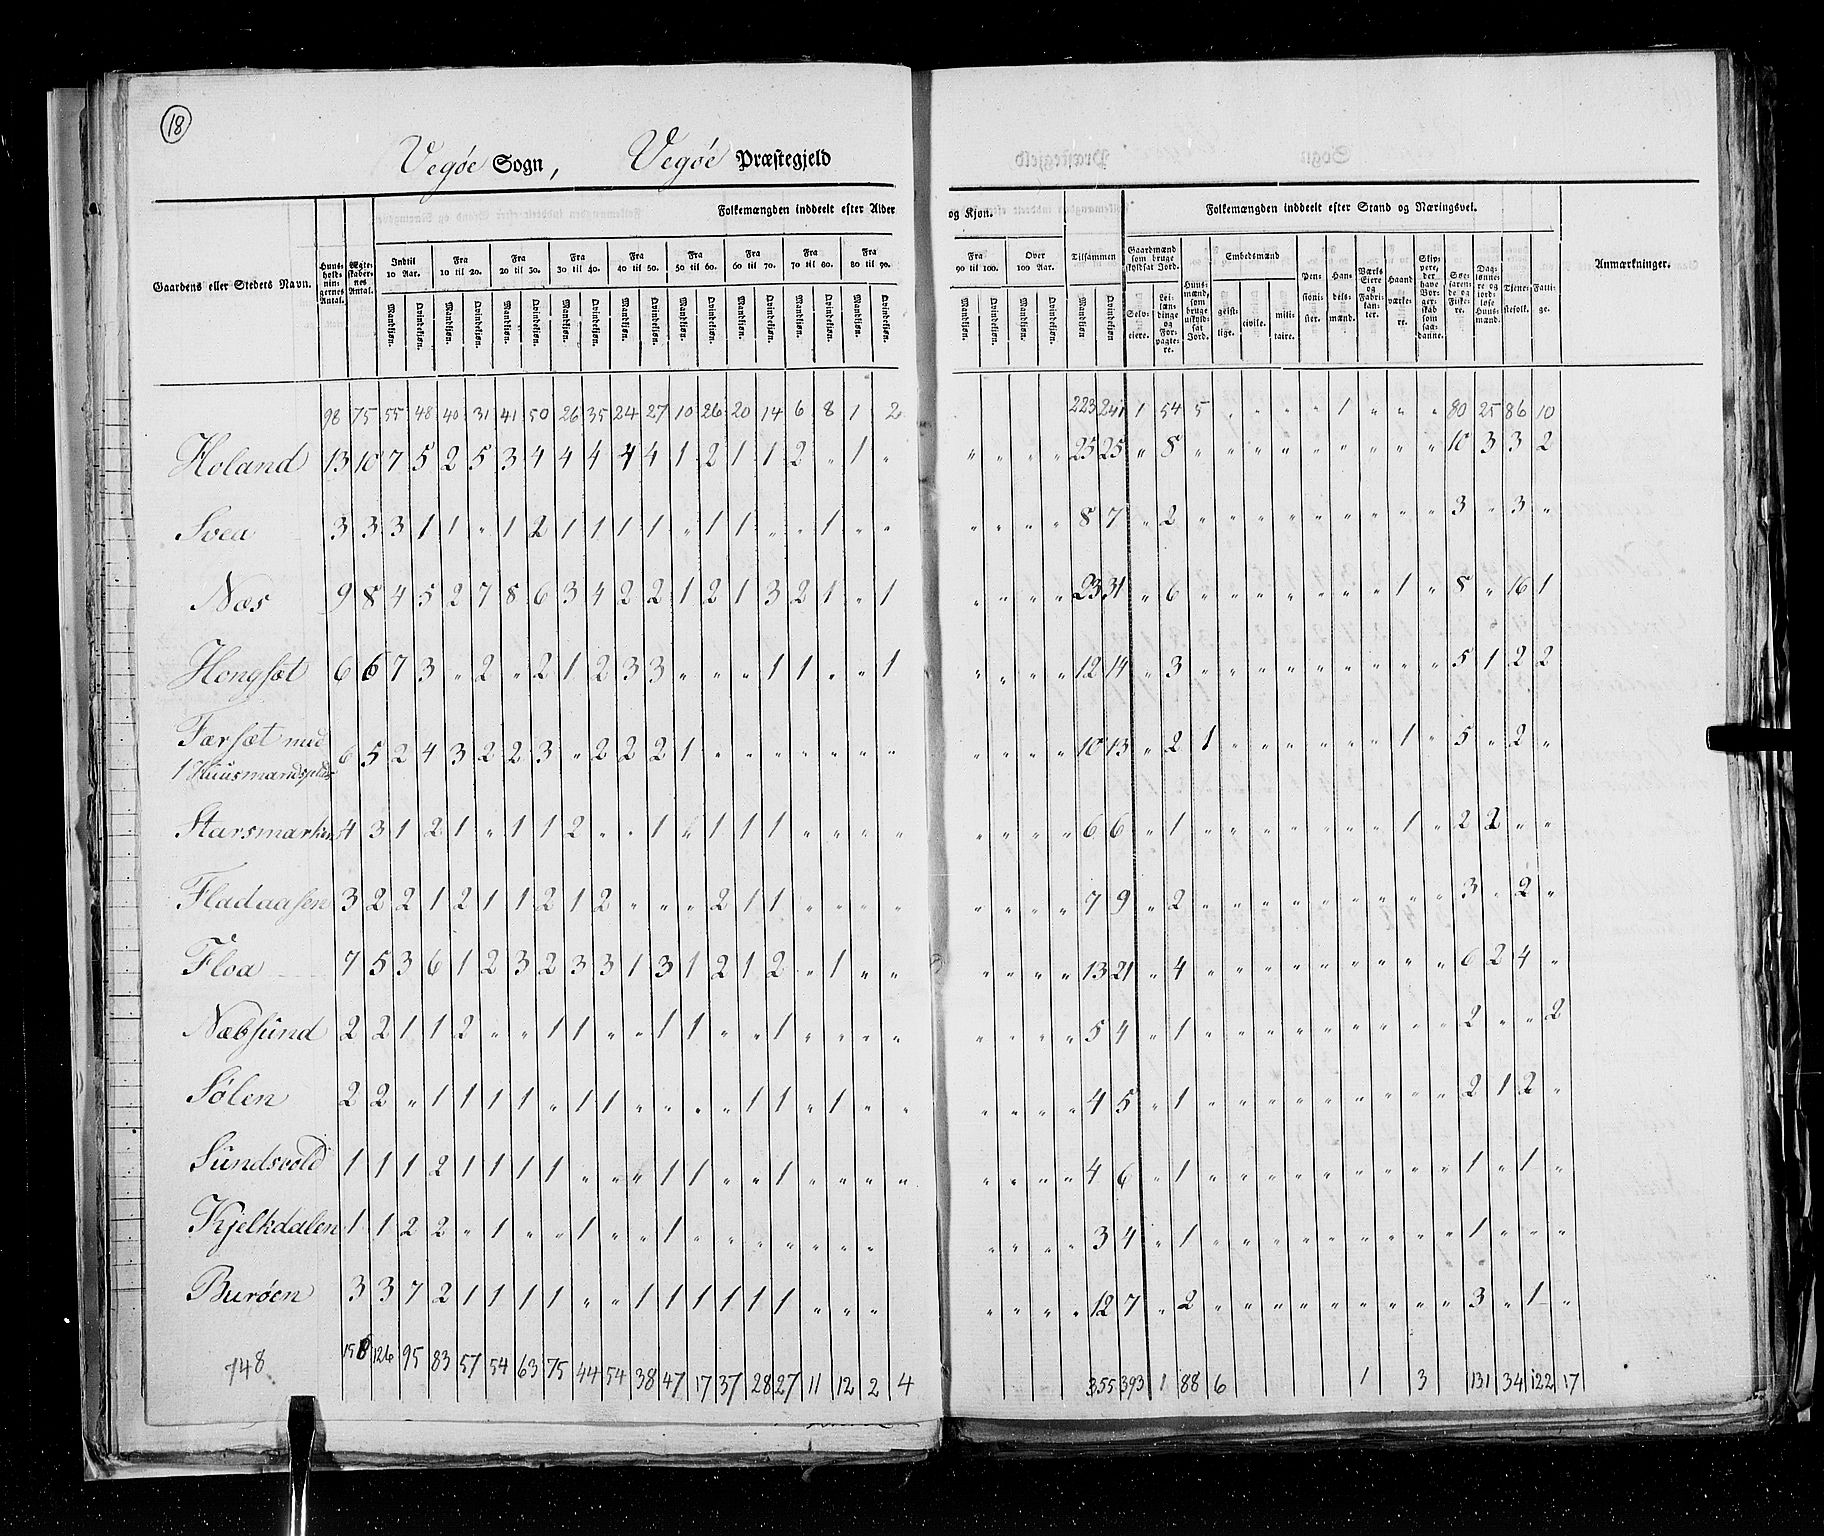 18
Vegøe Sogn, Vegøe Præstegjeld
Gaardens eller Stedets Navn. Huusholdningernes Antal. Ægteskabernes Antal. Folkemængden inddeelt efter Alder og Kjøn. Tilsammen Folkemængden inddeelt efter Stand og Næringsvei. Anmærkninger.
Indtil 10 Aar. Fra 10 til 20. Fra 20 til 30. Fra 30 til 40. Fra 40 til 50. Fra 50 til 60. Fra 60 til 70. Fra 70 til 80. Fra 80 til 90. Fra 90 til 100. Over 100 Aar. Gaardmænd som bruge skyldsat Jord. Huusmænd, som bruge uskyldsat Jord. Embedsmænd Pensionister. Handelsmænd. Værks Eiere og Fabrikanter. Haandværkere. Skippere, der have Borgerskab som saadanne. Søefarende og Fiskere. Daglønnere og jordløse Huusmænd. Tjenestefolk. Fattige.
Mandkjøn. Qvindekjøn. Mandkjøn. Qvindekjøn. Mandkjøn. Qvindekjøn. Mandkjøn. Qvindekjøn. Mandkjøn. Qvindekjøn. Mandkjøn. Qvindekjøn. Mandkjøn. Qvindekjøn. Mandkjøn. Qvindekjøn. Mandkjøn. Qvindekjøn. Mandkjøn. Qvindekjøn. Mandkjøn. Qvindekjøn. Mandkjøn Qvindekjøn. Selveiere. Leilændinge og Forpagtere. geistlige. civile. militaire.
98 75 55 48 40 31 41 50 26 35 24 27 10 26 20 14 6 8 1 2 223 241 1 54 5 " " " " 1 " " " 80 25 86 10
Holand 13 10 7 5 2 5 3 4 4 4 4 4 1 2 1 1 2 " 1 " " " " " 25 25 " 8 " " " " " " " " " 10 3 3 2
Svea 3 3 3 1 1 " 1 2 1 1 1 1 " 1 1 " " 1 " " " " " " 8 7 " 2 " " " " " " " " " 3 " 3 "
Næs 9 8 4 5 2 7 8 6 3 4 2 2 1 2 1 3 2 1 " 1 " " " " 23 31 " 6 " " " " " " " 1 " 8 " 16 1
Hongsæt 6 6 7 3 " 2 " 2 1 2 3 3 " " " 1 1 " " 1 " " " " 12 14 " 3 " " " " " " " " " 5 1 2 2
Færsæt med
1 Huusmandsplads 6 5 2 4 3 2 2 3 " 2 2 2 1 " " " " " " " " " " " 10 13 " 2 1 " " " " " " 1 " 5 " 2 "
Starsmarken 4 3 1 2 1 " 1 1 2 " " 1 " 1 1 1 " " " " " " " " 6 6 " 1 " " " " " " " 1 " 2 2 " "
Fladaasen 3 2 2 1 2 1 1 2 1 2 " " " 2 1 1 " " " " " " " " 7 9 " 2 " " " " " " " " " 3 " 2 "
Floa 7 5 3 6 1 2 3 2 3 3 1 3 1 2 1 2 " 1 " " " " " " 13 21 " 4 " " " " " " " " " 6 2 4 "
Næbsund 2 2 1 1 2 " " 1 1 " " 1 1 " " 1 " " " " " " " " 5 4 " 1 " " " " " " " " " 2 " " 2
Sølen 2 2 " 1 1 1 1 " 1 1 " " " " 1 1 " 1 " " " " " " 4 5 " 1 " " " " " " " " " 2 1 2 "
Sundsvold 1 1 1 2 1 1 1 1 " " " 1 1 " " 1 " " " " " " " " 4 6 " 1 " " " " " " " " " 1 " 1 "
Kjelkdalen 1 1 2 2 " 1 " " 1 " " 1 " " " " " " " " " " " 3 4 " 1 " " " " " " " " " 1 " " "
Burøen 3 3 7 2 1 1 1 1 " " 1 1 1 1 1 1 " " " " " " " 12 7 " 2 " " " " " " " " " 3 " 1 "
748 158 126 95 83 57 54 63 75 44 54 38 47 17 37 28 27 11 12 2 4 355 393 1 88 6 1 3 131 34 122 17